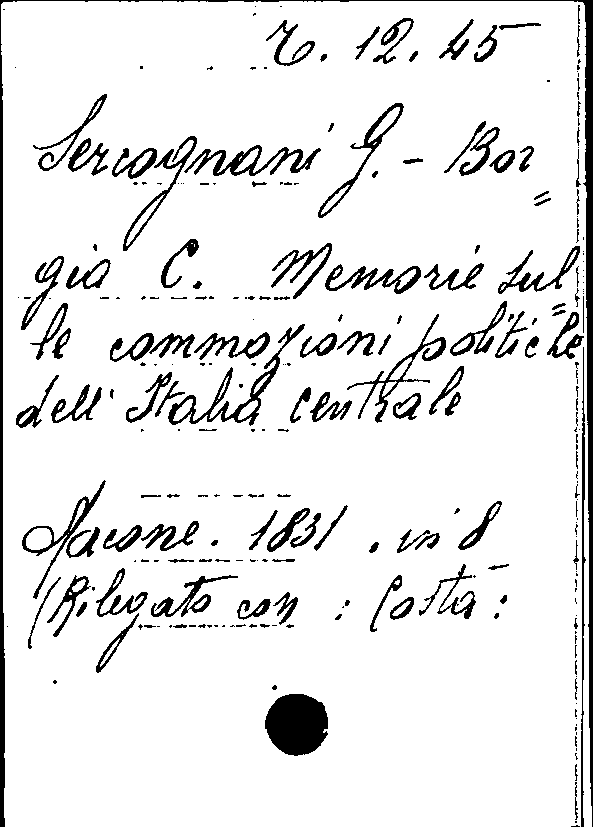 7. 12. 45
Sercognani G. - Bor=
gia C. Memorie sul=
le commozioni politiche
dell' Italia centrale
Macone. 1831. in 8
(Rilegato con : Costa :